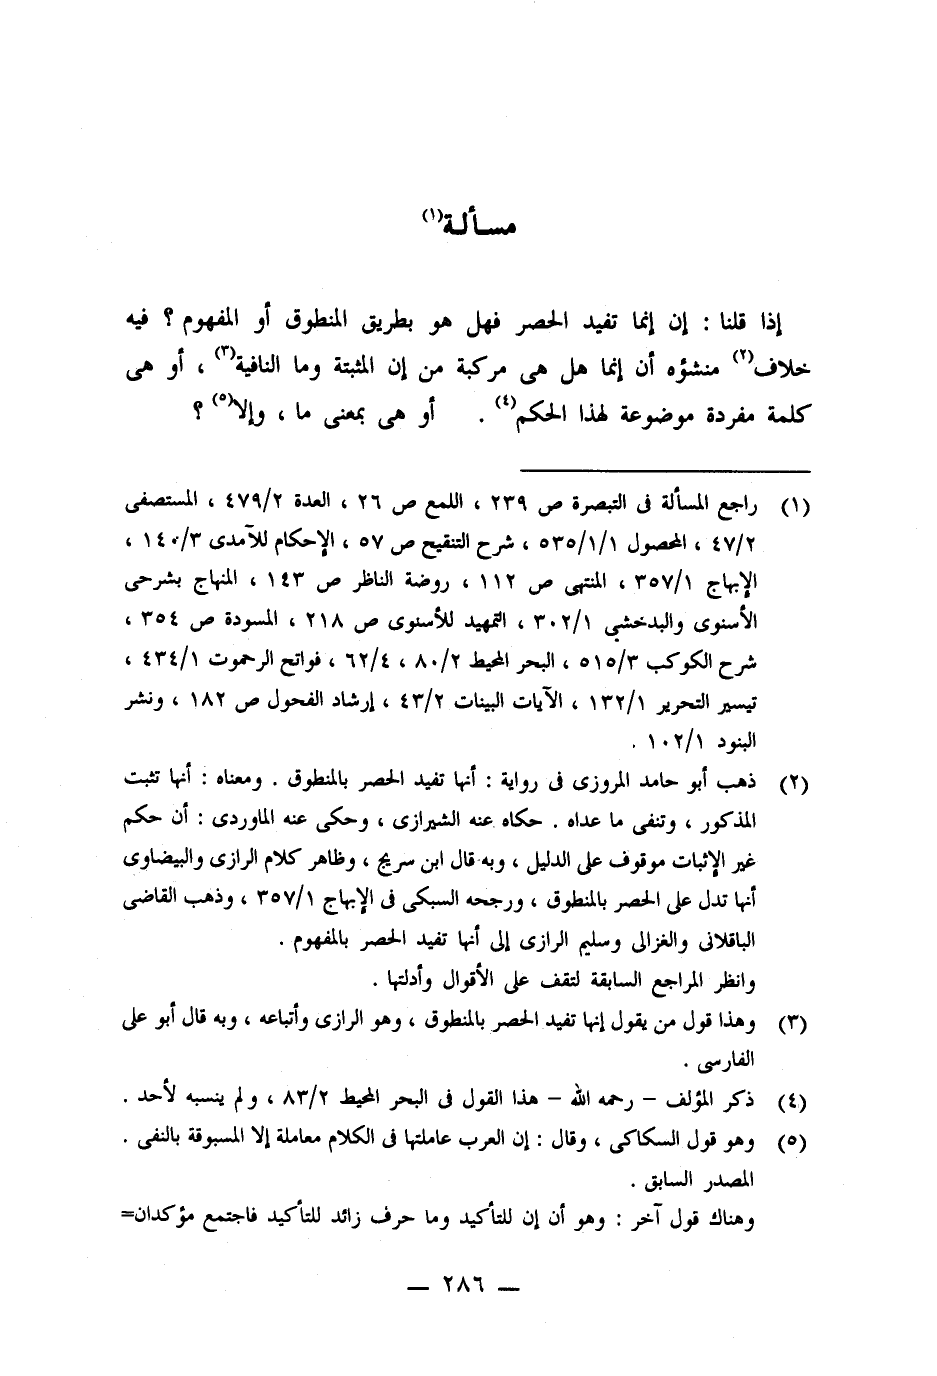 مسألة(١)
إذا قلنا : إن إنما تفيد الحصر فهل هو بطريق المنطوق أو المفهوم ؟ فيه
خلاف(٢) منشؤه أن إنما هل هى مركبة من إن المثبتة وما النافية(٣) ، أو هى
كلمة مفردة موضوعة لهذا الحكم(٤) . أو هى بمعنى ما ، وإلا(٥) ؟
(١) راجع المسألة فى التبصرة ص ٢٣٩ ، اللمع ص ٢٦ ، العدة ٤٧٩/٢ ، المستصفى
٤٧/٢ ، المحصول ٥٣٥/١/١ ، شرح التنقيح ص ٥٧ ، الإحكام للآمدى ١٤٠/٣ ،
الإبهاج ٣٥٧/١ ، المنتهى ص ١١٢ ، روضة الناظر ص ١٤٣ ، المنهاج بشرحى
الأسنوى والبدخشي ٣٠٢/١ ، التمهيد للأسنوى ص ٢١٨ ، المسودة ص ٣٥٤ ،
شرح الكوكب ٥١٥/٣ ، البحر المحيط ٨٠/٢ ، ٦٢/٤ ، فواتح الرحموت ٤٣٤/١ ،
تيسير التحرير ١٣٢/١ ، الآيات البينات ٤٣/٢ ، إرشاد الفحول ص ١٨٢ ، ونشر
البنود ١٠٢/١ .
(٢) ذهب أبو حامد المروزى فى رواية : أنها تفيد الحصر بالمنطوق . ومعناه : أنها تثبت
المذكور ، وتنفى ما عداه . حكاه عنه الشيرازى ، وحكى عنه الماوردى : أن حكم
غير الإثبات موقوف على الدليل ، وبه قال ابن سريج ، وظاهر كلام الرازى والبيضاوى
أنها تدل على الحصر بالمنطوق ، ورجحه السبكى فى الإبهاج ٣٥٧/١ ، وذهب القاضى
الباقلانى والغزالى وسليم الرازى إلى أنها تفيد الحصر بالمفهوم .
وانظر المراجع السابقة لتقف على الأقوال وأدلتها .
(٣) وهذا قول من يقول إنها تفيد الحصر بالمنطوق ، وهو الرازى وأتباعه ، وبه قال أبو على
الفارسى .
(٤) ذكر المؤلف - رحمه الله - هذا القول فى البحر المحيط ٨٣/٢ ، ولم ينسبه لأحد .
(٥) وهو قول السكاكى ، وقال : إن العرب عاملتها فى الكلام معاملة إلا المسبوقة بالنفى .
المصدر السابق .
وهناك قول آخر : وهو أن إن للتأكيد وما حرف زائد للتأكيد فاجتمع مؤكدان=
— ٢٨٦ —